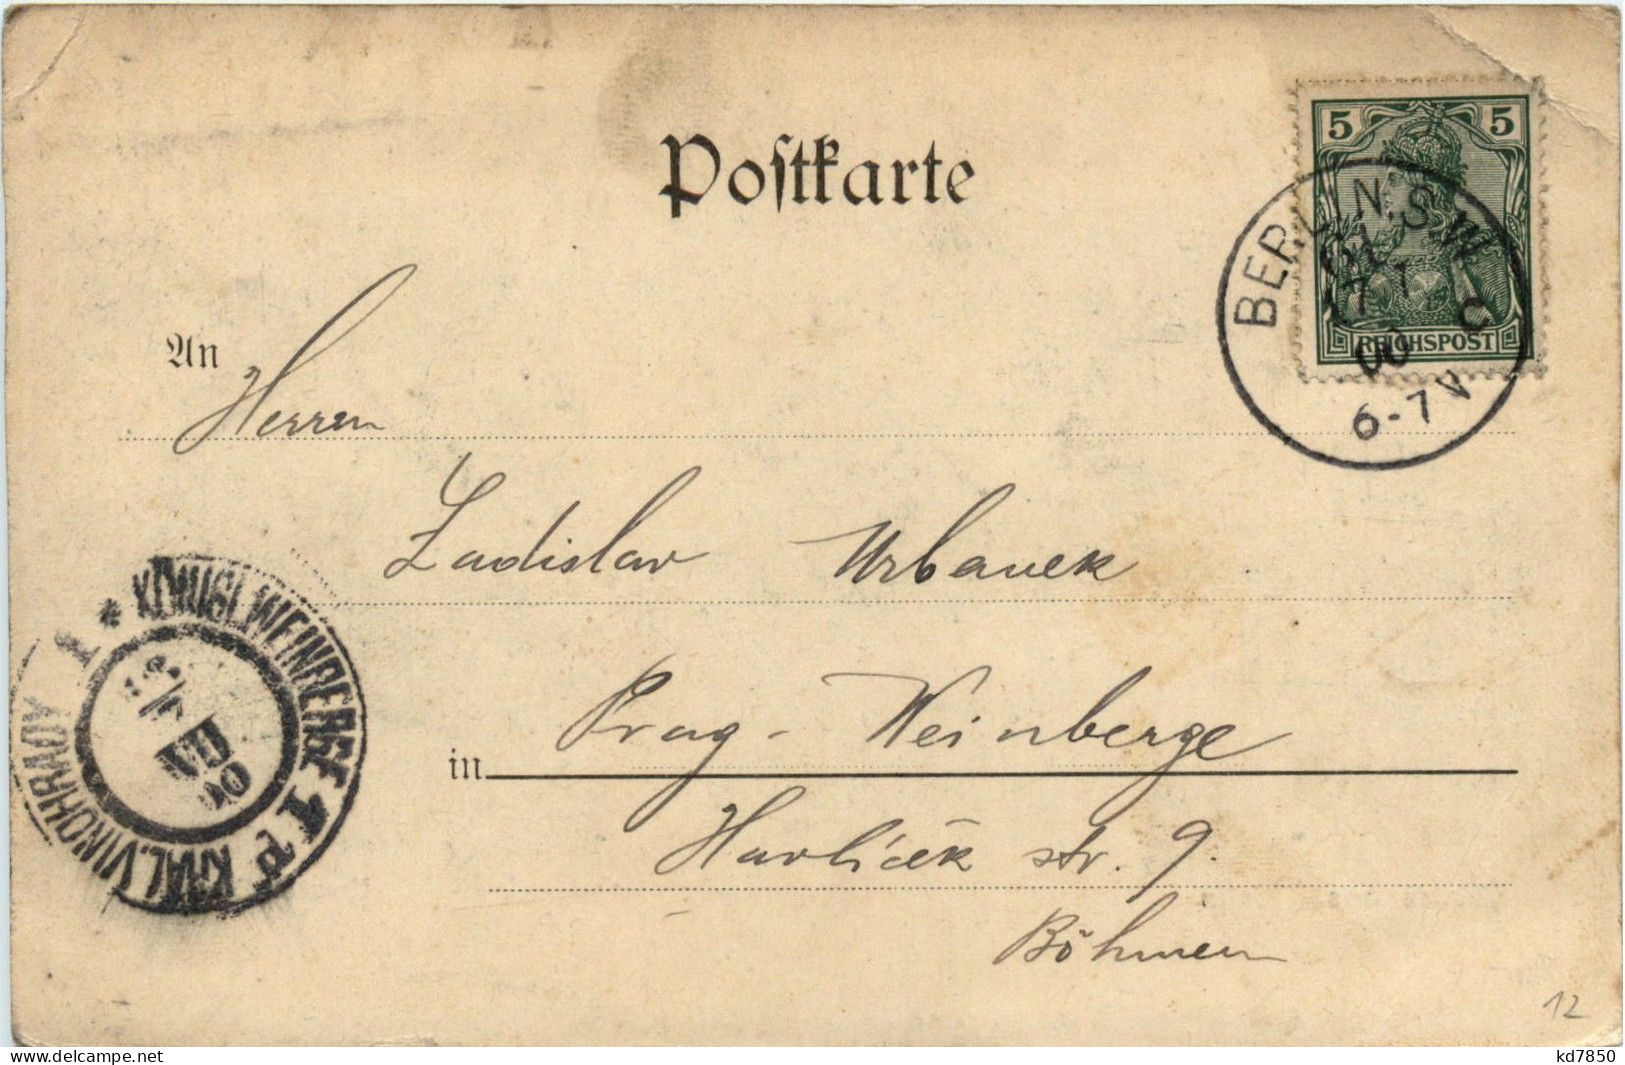 Postkarte
5 5
REICHSPOST
BERLIN.S.W.
61
17 7
00
6-7V
C
An
Herren
Ladislav Urbanek
in Prag-Weinberge
Havlíček str. 9.
Böhmen
KÖNIGL.WEINBERGE 1
KRÁL.VINOHRADY 1
VII
00
12
www.delcampe.net
kd7850